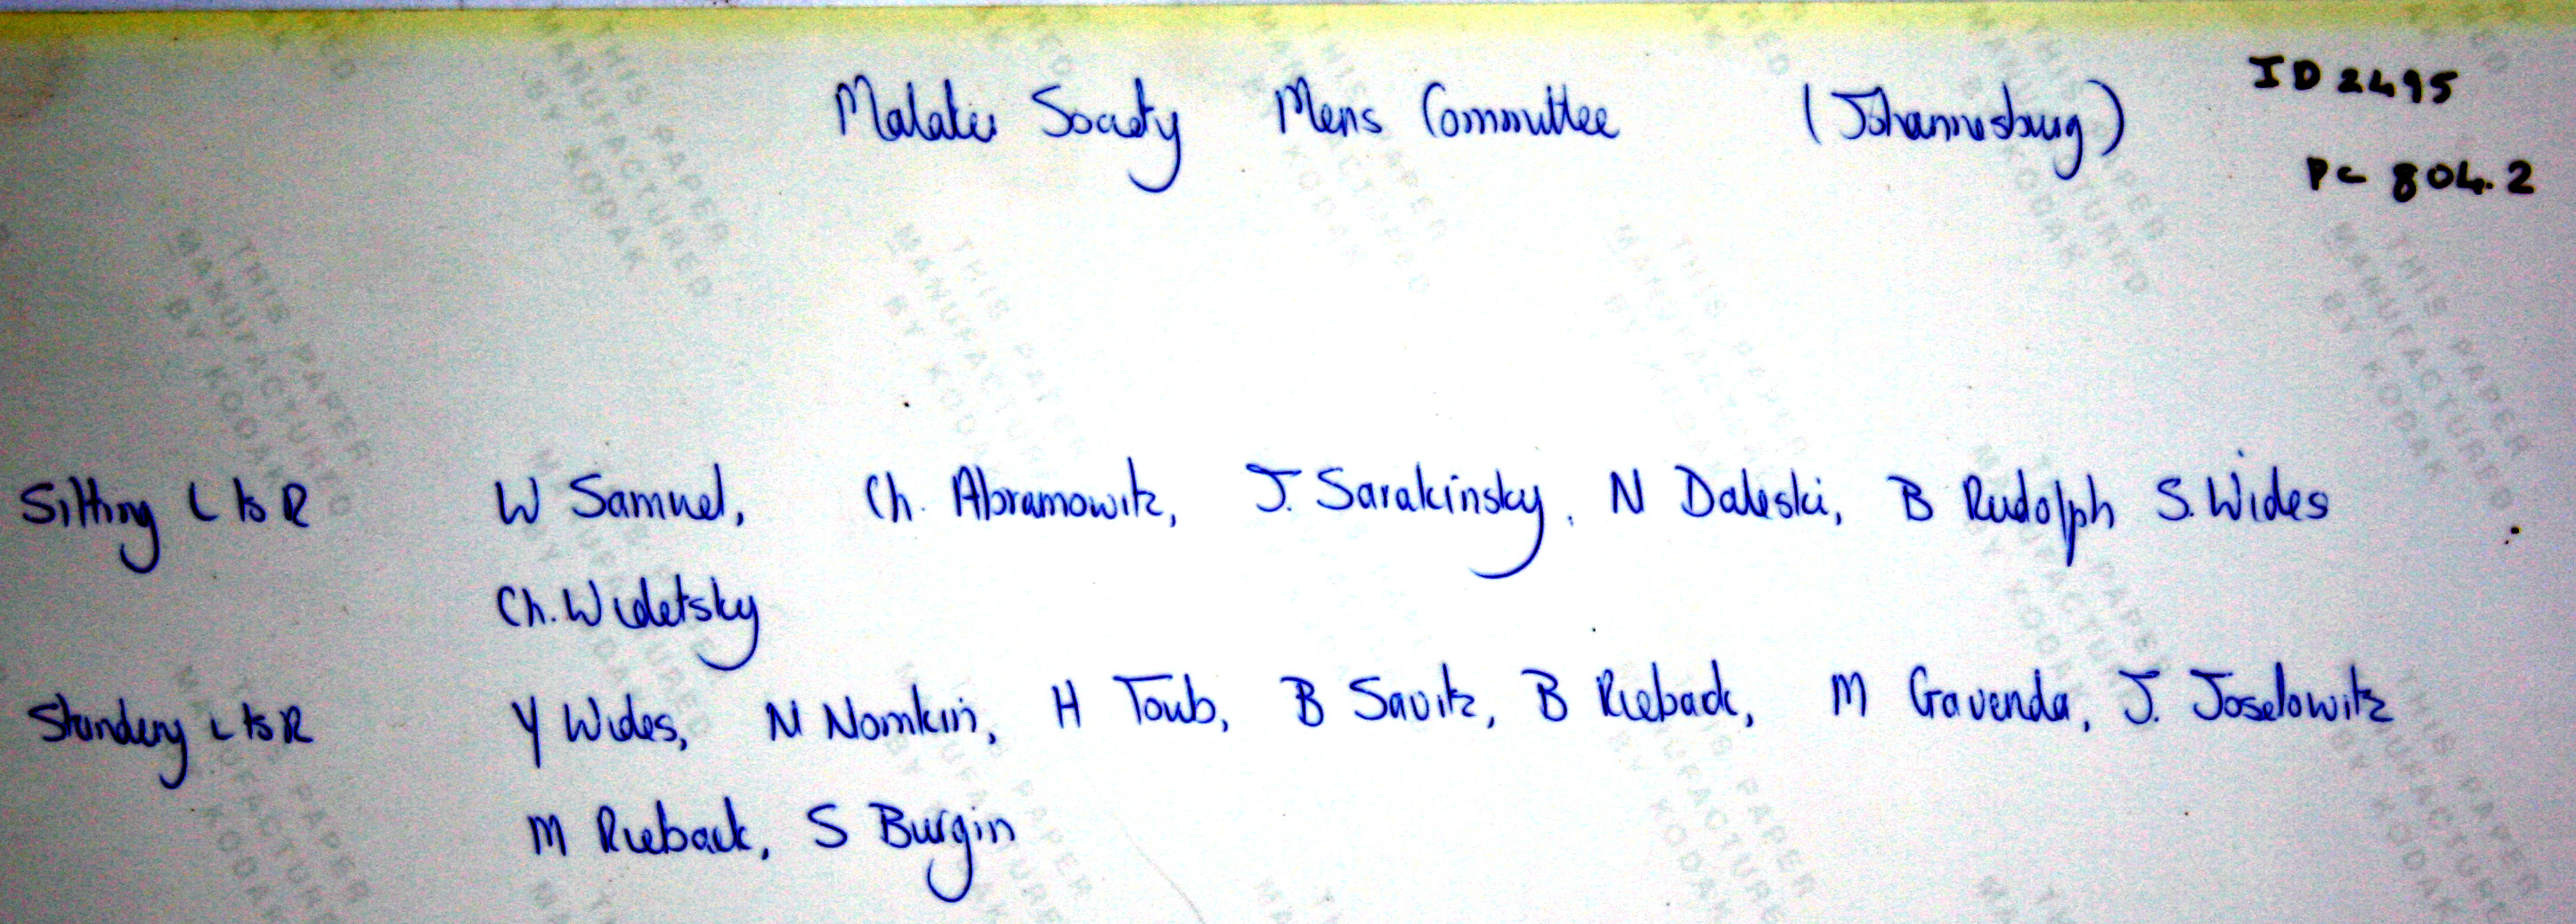 Malater Society Mens Committee (Johannesburg)
ID 2495
PC 804.2
Sitting L to R W Samuel, Ch. Abramowitz, J. Sarakinsky, N Daleski, B Rudolph S. Wides
Ch. Widetsky
Standing L to R Y Wides, N Nomkin, H Toub, B Savitz, B Rieback, M Gavenda, J. Joselowitz
M Rieback, S Burgin
THIS PAPER
MANUFACTURED
BY KODAK